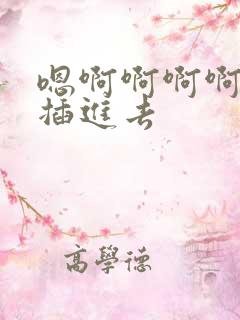 嗯啊啊啊啊
插進去
高學德